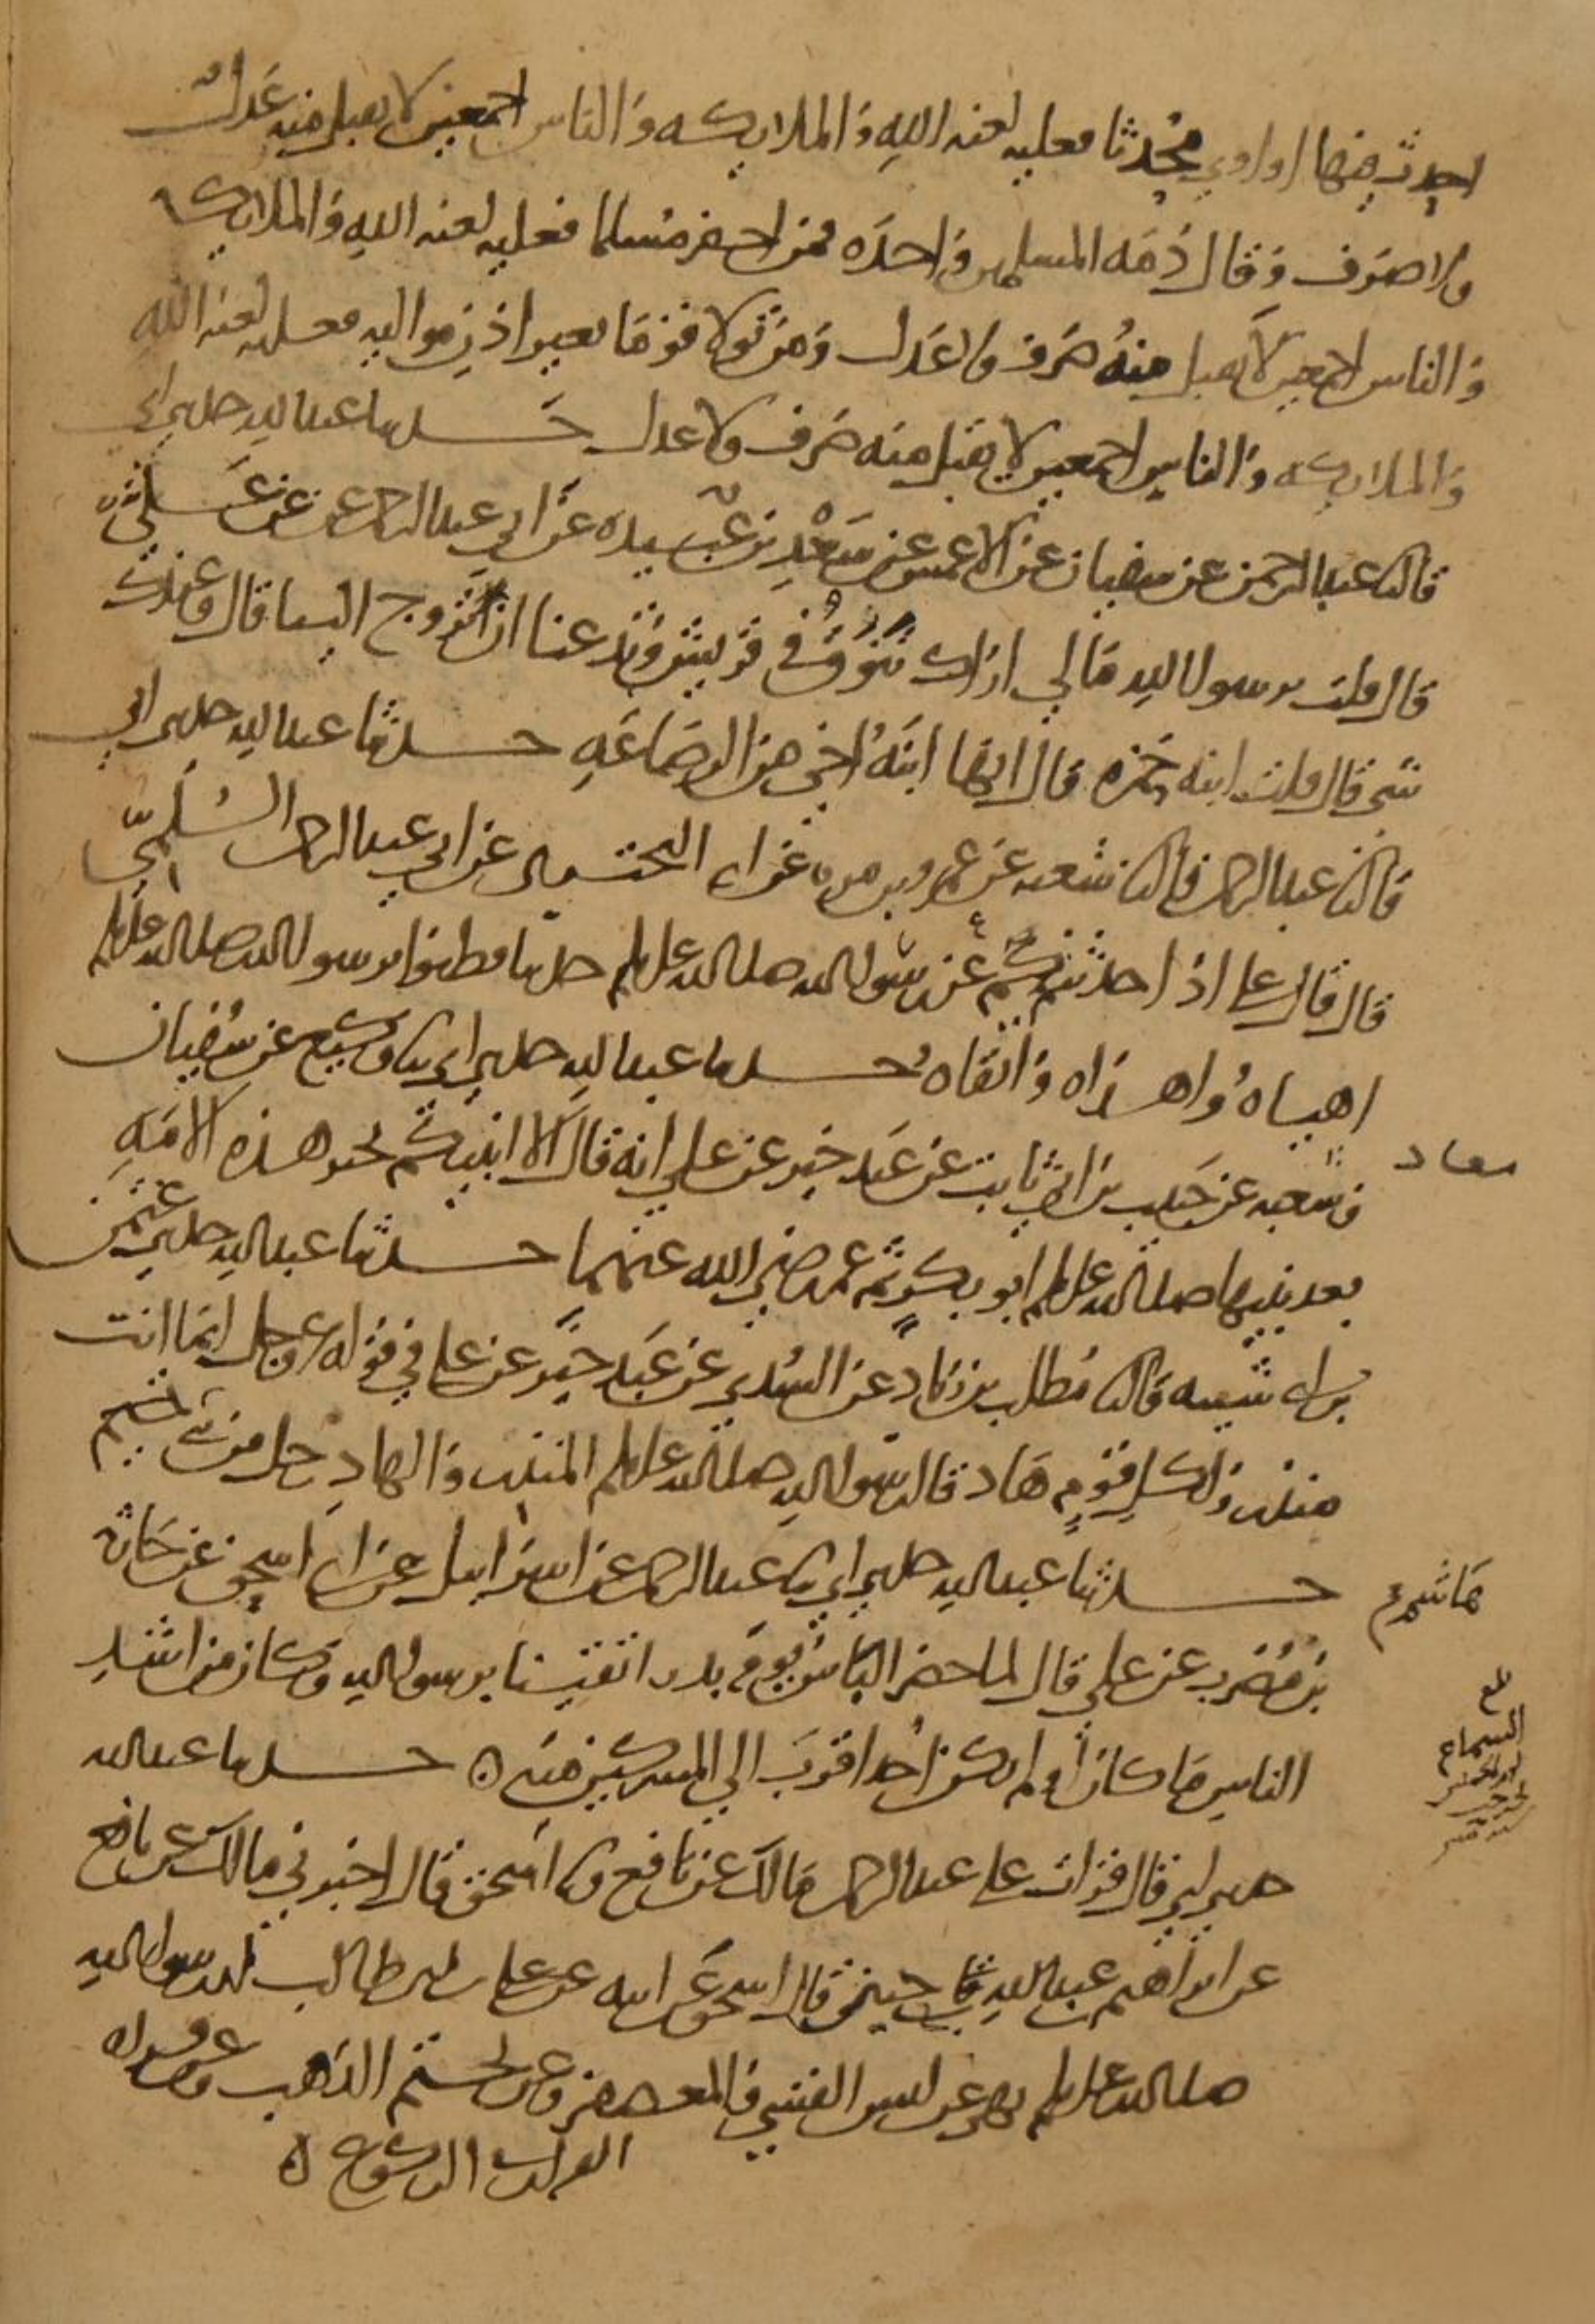 احدث فيها او اوى محدثا فعليه لعنه الله والملايكه والناس اجمعين لا يقبل منه عدل
ولا صرف وقال ذمه المسلمين واحده فمن اخفر مسلما فعليه لعنه الله والملايكه
والناس اجمعين لا يقبل منه صرف ولا عدل ومن تولا قوما بغير اذن مواليه فعليه لعنه الله
والملايكه والناس اجمعين لا يقبل منه صرف ولا عدل حدثنا عبد الله حدثني ابي
قال ثنا عبد الرحمن عن سفيان عن الاعمش عن سعد بن عبيده عن ابي عبد الرحمن عن علي
قال قلت يرسول الله مالي اراك تنوق في قريش وتدعنا ان تزوج الينا قال وعندك
شي قال قلت ابنه حمزه قال انها ابنه اخي من الرضاعه حدثنا عبد الله حدثني ابي
قال ثنا عبد الرحمن قال ثنا شعبه عن عمرو بن مره عن ابي البختري عن ابي عبد الرحمن السلمي
قال قال علي اذا حدثتكم عن رسول الله صلى الله عليه وسلم حديثا فظنوا برسول الله صلى الله عليه وسلم
اهياه واهداه واتقاه حدثنا عبد الله حدثني ابي ثنا وكيع عن سفيان
وشعبه عن حبيب بن ابي ثابت عن عبد خير عن علي انه قال الا انبيكم بخير هذه الامه
معاد
بعد نبيها صلى الله عليه وسلم ابو بكر ثم عمر رضي الله عنهما حدثنا عبد الله حدثني عثمن
بن ابي شيبه قال ثنا مطلب بن زياد عن السدي عن عبد خير عن علي في قوله عز وجل انما انت
منذر ولكل قوم هاد قال رسول الله صلى الله عليه وسلم المنذر والهاد رجل من بني هشم
حدثنا عبد الله حدثني ابي ثنا عبد الرحمن عن اسرايل عن ابي اسحق عن حارثه
هاشم
بن مضرب عن علي قال لما حضر الباس يوم بدر اتقينا برسول الله وكان من اشد
الناس ما كان او لم يكن احد اقرب الي المشركين منه حدثنا عبد الله
السماع
حدثني ابي قال قرات علي عبد الرحمن مالك عن نافع وثنا اسحق قال اخبرني مالك عن نافع
عن ابراهيم بن عبد الله بن حنين قال اسحق عن ابيه عن علي بن ابي طالب ان رسول الله
صلى الله عليه وسلم نهى عن لبس القسي والمعصفر وعن تختم الذهب وعن قراه
القران في الركوع